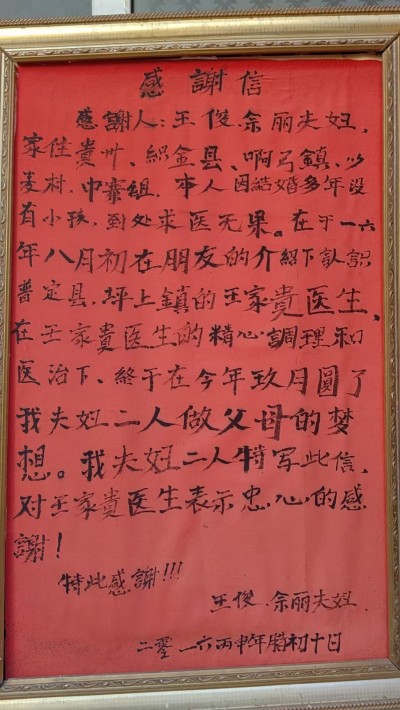 感謝信
感謝人:王俊、佘丽夫妇,
家住貴州、織金县、啊弓鎮、以
麦村、中寨組,本人因結婚多年没
有小孩,到处求医无果。在于一六
年八月初在朋友的介紹下認識
普定县,坪上鎮的王家貴医生、
在王家貴医生的精心調理和
医治下、終于在今年玖月圓了
我夫妇二人做父母的梦
想。我夫妇二人特写此信,
对王家貴医生表示忠心的感
謝!
特此感謝!!!
王俊、佘丽夫妇
二零一六丙申年腊初十日